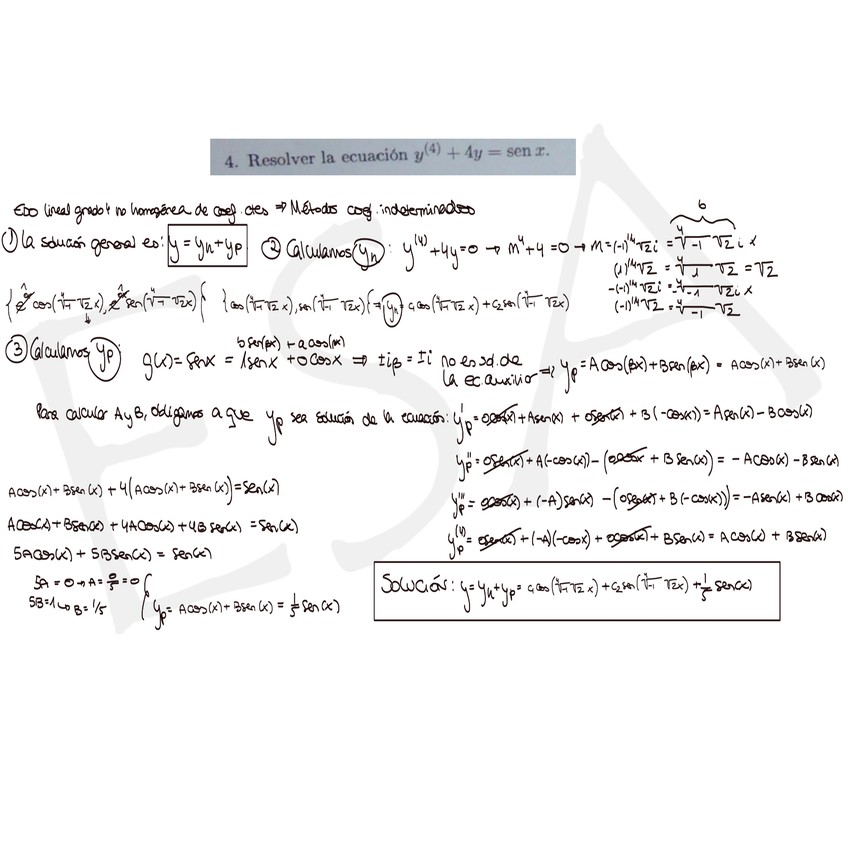 4. Resolver la ecuación y⁽⁴⁾ + 4y = sen x.
EDO lineal grado 4 no homogénea de coef. ctes ⇒ Métodos coef. indeterminados
① La solución general es: y = yₕ + yₚ ② Calculamos yₕ : y⁽⁴⁾ + 4y = 0 → m⁴ + 4 = 0 → m = (-1)^{1/4} √2 i = ∜-1 √2 i x
b
(1)^{1/4} √2 = ∜1 √2 = √2
-(-1)^{1/4} √2 i = -∜-1 √2 i x
(-1)^{1/4} √2 = ∜-1 √2
cos(∜-1 √2 x), sen(∜-1 √2 x) { cos(∜-1 √2 x), sen(∜-1 √2 x) { → yₕ = c₁ cos(∜-1 √2 x) + c₂ sen(∜-1 √2 x)
b sen(βx) + a cos(βx)
③ Calculamos yₚ g(x) = sen x = 1 sen x + 0 cos x ⇒ ±iβ = ±i no es sol. de
la ec auxiliar ⇒ yₚ = A cos(βx) + B sen(βx) = A cos(x) + B sen(x)
Para calcular A y B, obligamos a que yₚ sea solución de la ecuación: y'ₚ = 0cos(x) + A sen(x) + 0sen(x) + B(-cos(x)) = A sen(x) - B cos(x)
y''ₚ = 0sen(x) + A(-cos(x)) - (0cosx + B sen(x)) = -A cos(x) - B sen(x)
A cos(x) + B sen(x) + 4(A cos(x) + B sen(x)) = sen(x)
y'''ₚ = 0cos(x) + (-A) sen(x) - (0sen(x) + B(-cos(x))) = -A sen(x) + B cos(x)
A cos(x) + B sen(x) + 4A cos(x) + 4B sen(x) = sen(x)
y⁽⁴⁾ₚ = 0sen(x) + (-A)(-cosx) + 0cos(x) + B sen(x) = A cos(x) + B sen(x)
5A cos(x) + 5B sen(x) = sen(x)
5A = 0 → A = 0/5 = 0
5B = 1 → B = 1/5
yₚ = A cos(x) + B sen(x) = 1/5 sen(x)
Solución: y = yₕ + yₚ = c₁ cos(∜-1 √2 x) + c₂ sen(∜-1 √2 x) + 1/5 sen(x)
ESA